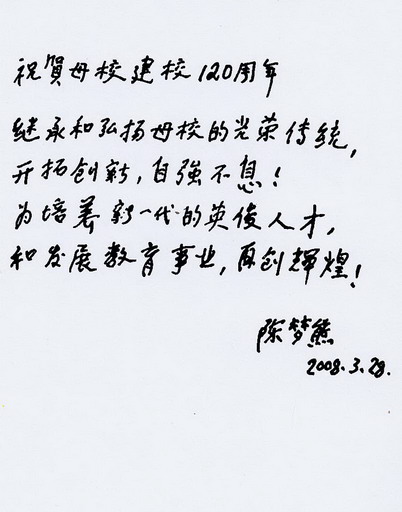 祝賀母校建校120周年
继承和弘扬母校的光荣传统,
开拓创新,自強不息!
为培养新一代的英俊人才,
和发展教育事业,再创辉煌!
陈梦熊
2008.3.28.